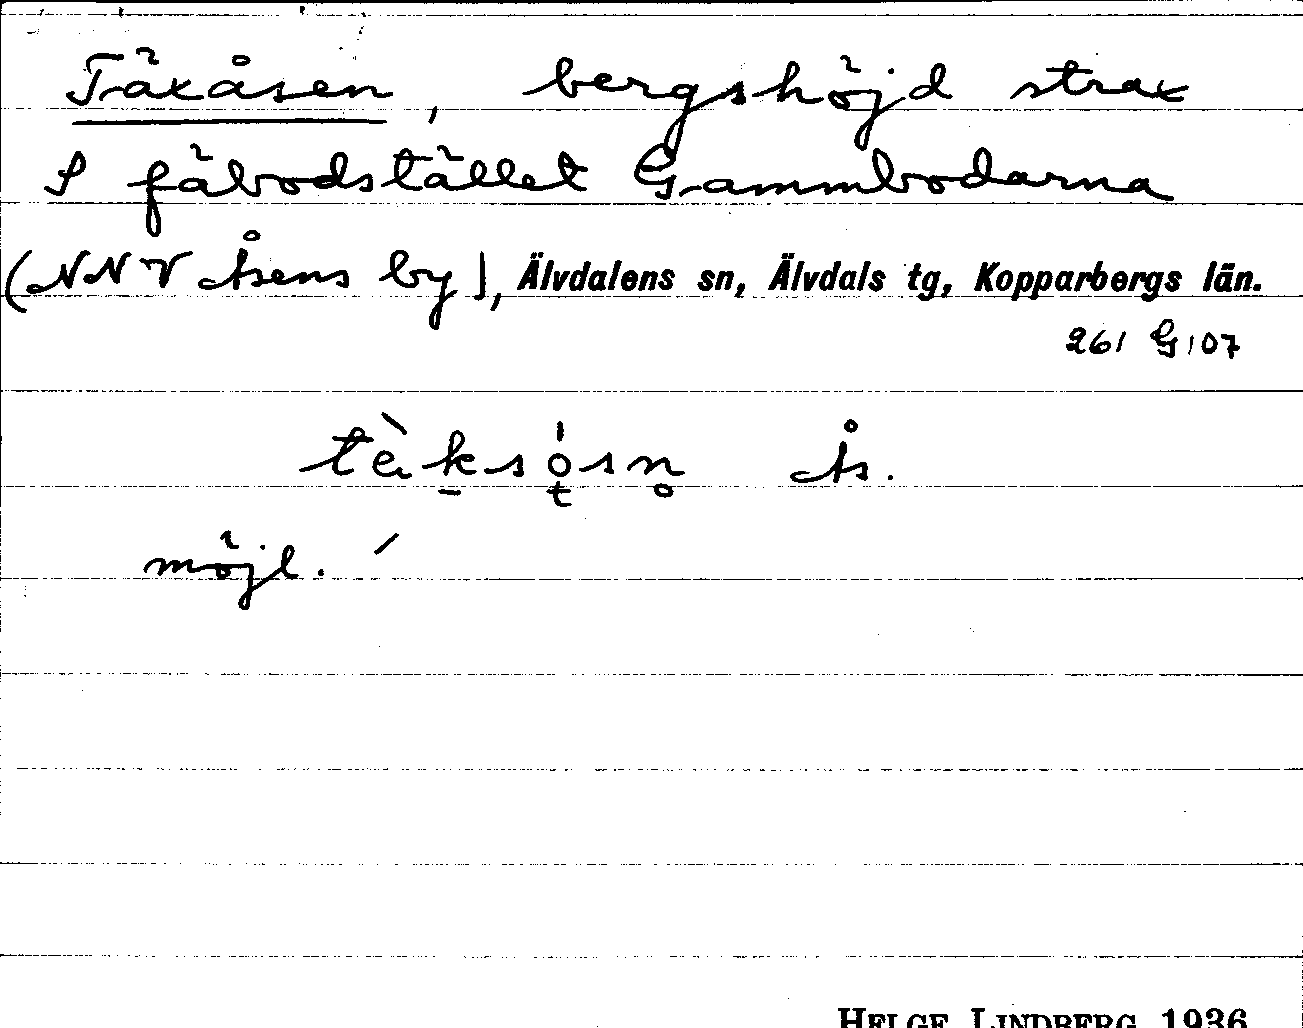 Täxåsen, bergshöjd strax
S fäbodstället Gammbodarna
(NNV Åsens by), Älvdalens sn, Älvdals tg, Kopparbergs län.
261 G 107
tὲksósn Ås.
möjl. ´
HELGE LINDBERG 1936